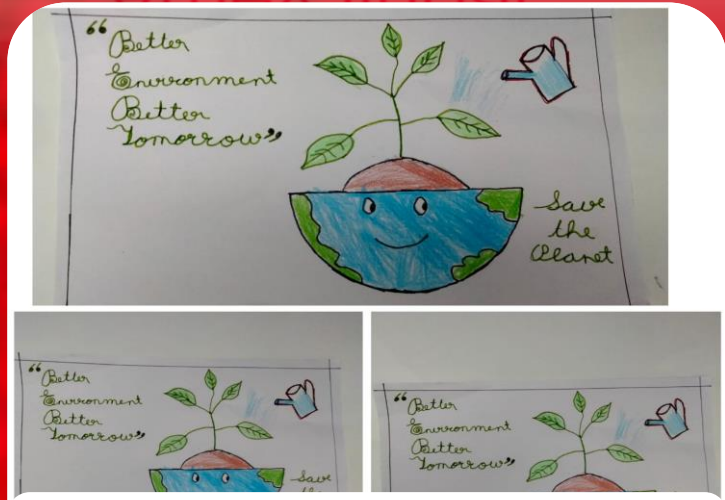 “Better
Environment
Better
Tomorrow”
Save
the
Planet
“Better
Environment
Better
Tomorrow”
Save
“Better
Environment
Better
Tomorrow”